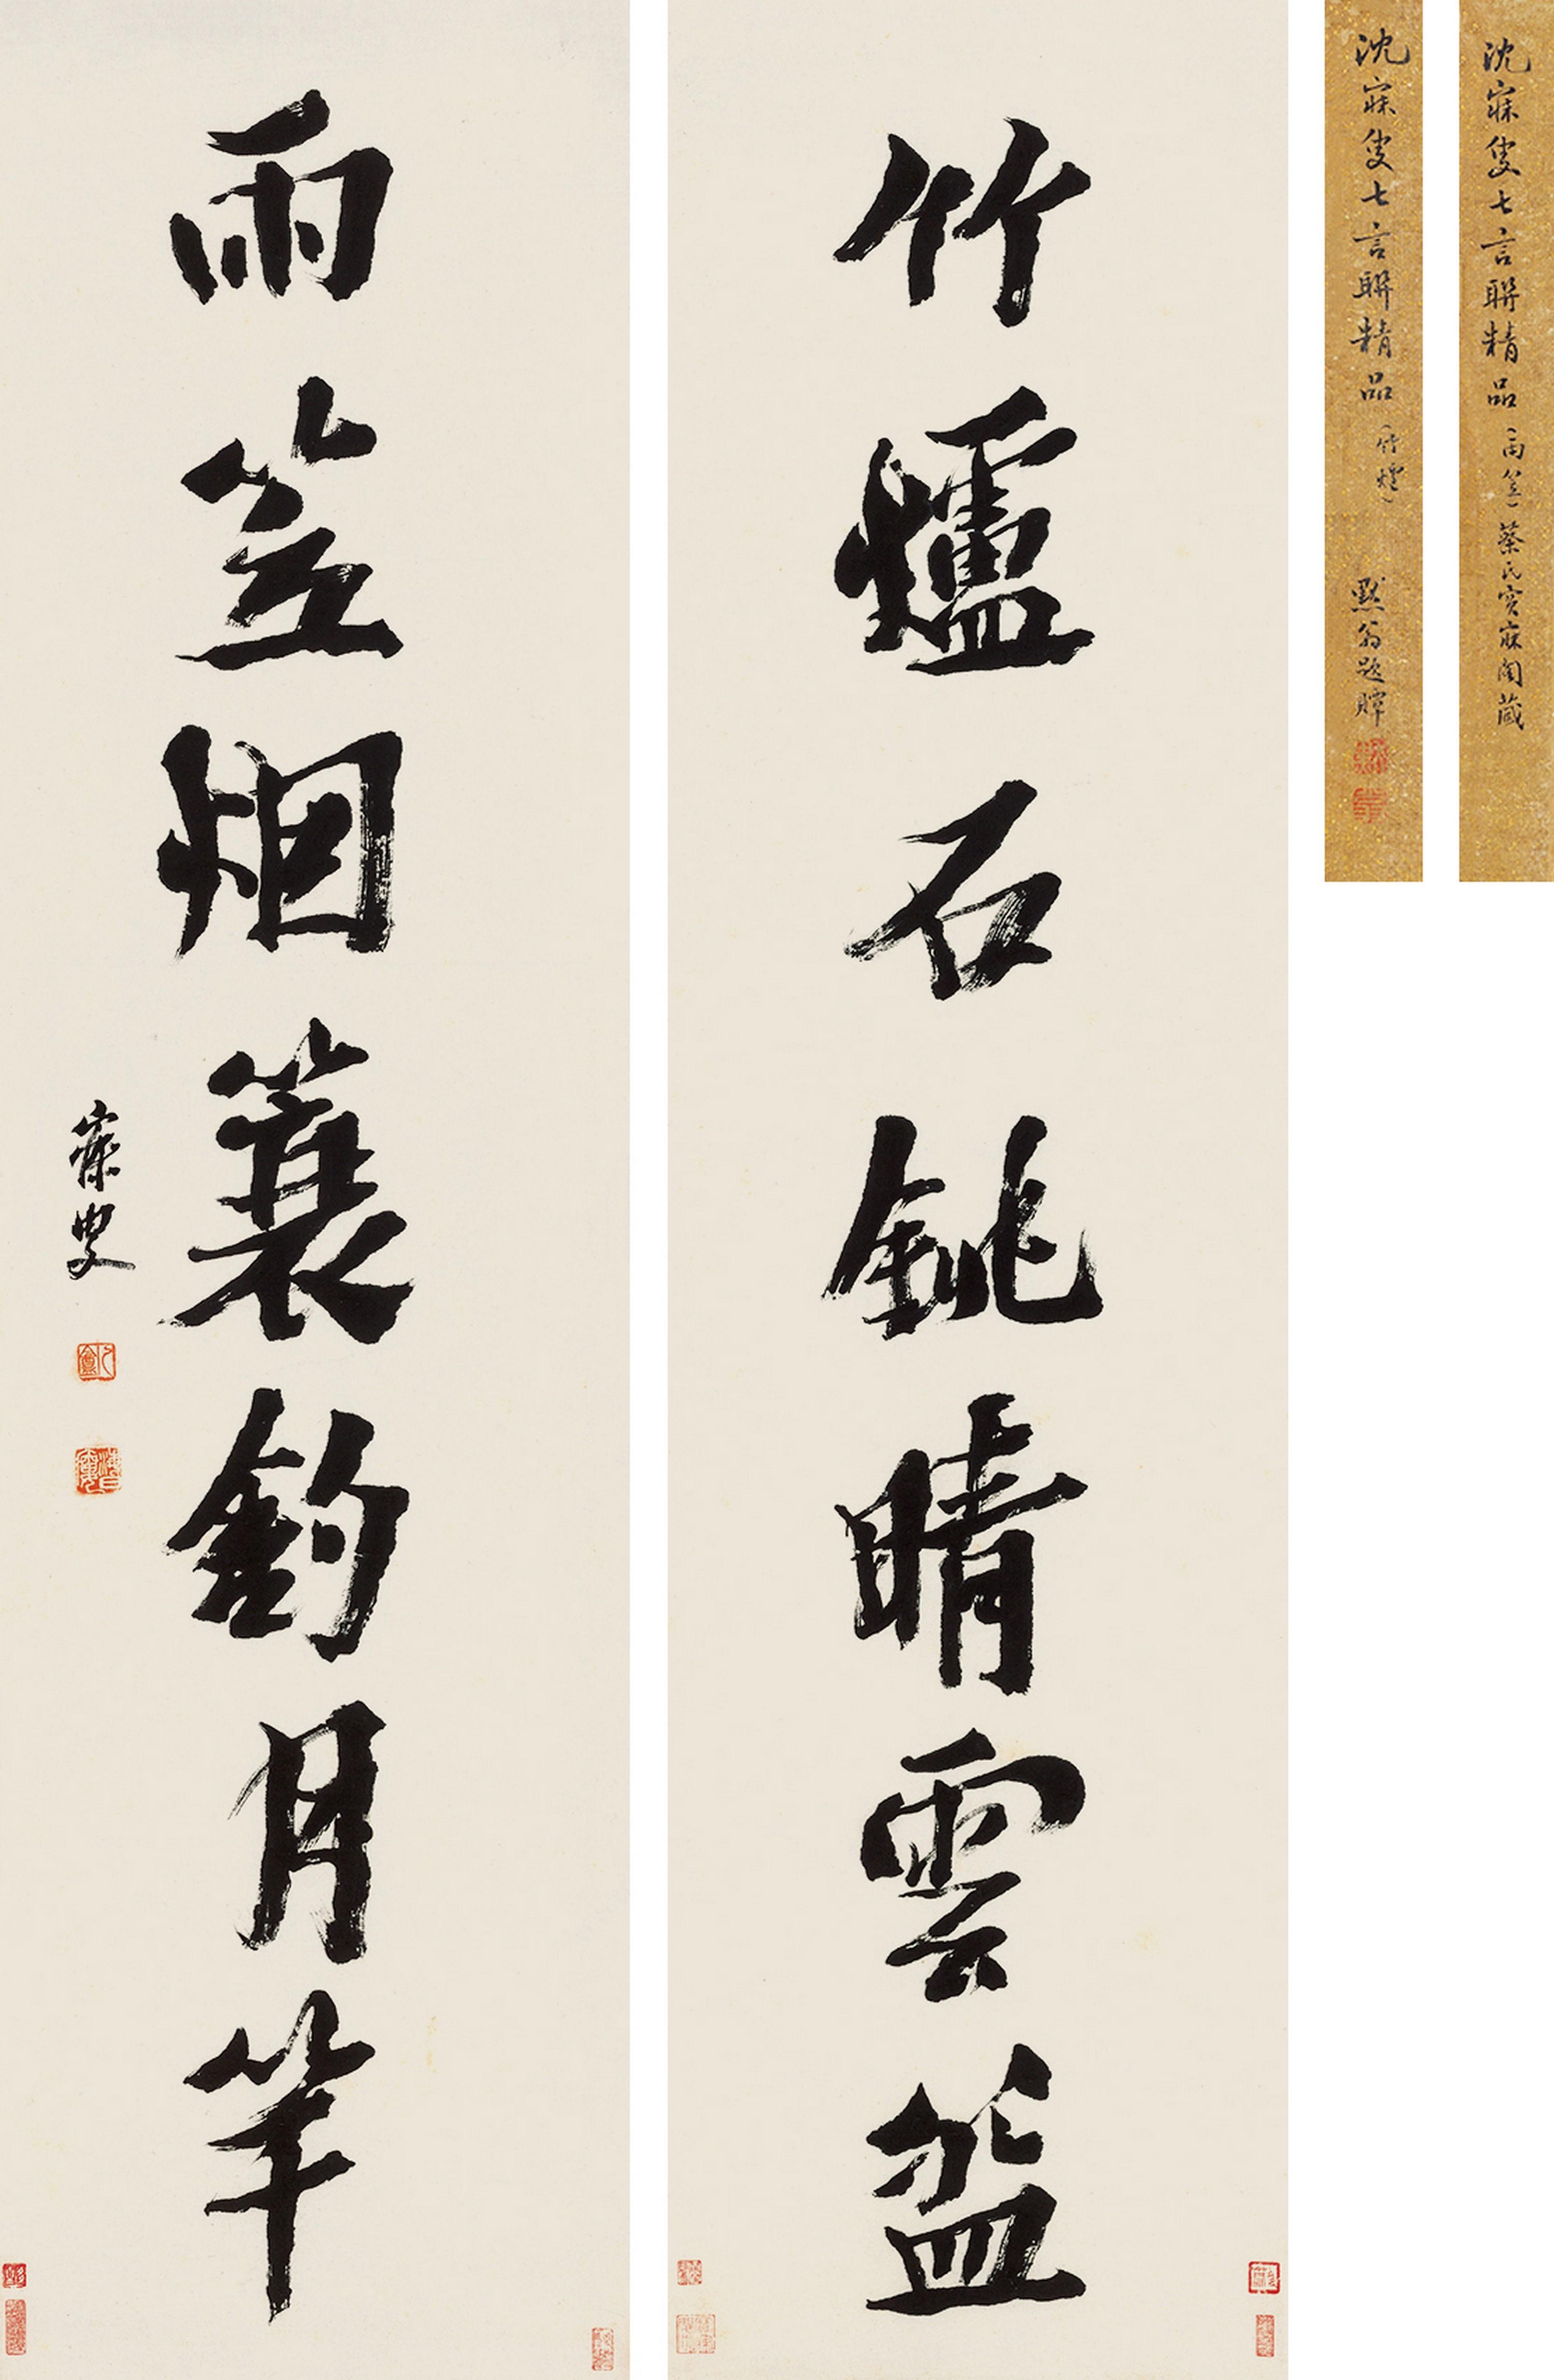 竹爐石銚晴雲盌
雨笠烟簑釣月竿
寐叟
沈寐叟七言聯精品（竹爐）
默翁題贉
沈寐叟七言聯精品（雨笠）蔡氏宝寐閣藏